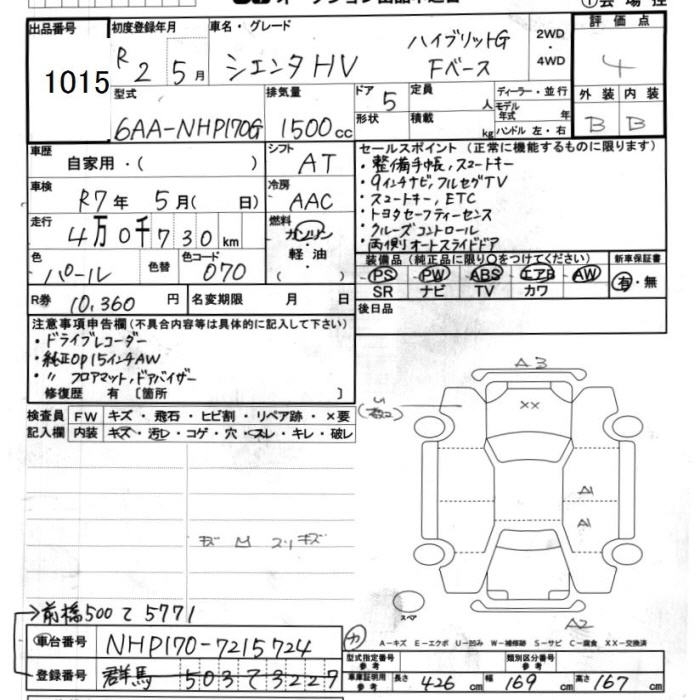 出品番号 初度登録年月 車名・グレード 評価点
1015 R2 5月 シエンタHV ハイブリットG Fベース 2WD・4WD 4
型式 排気量 ドア 定員 ディーラー・並行 外装 内装
6AA-NHP170G 1500cc 5 人 モデル年式 年 B B
形状 積載 kg ハンドル 左・右
車歴 自家用・( ) シフト AT セールスポイント (正常に機能するものに限ります)
・整備手帳,スマートキー
車検 R7年 5月( 日) 冷房 AAC ・9インチナビ,フルセグTV
・スマートキー, ETC
走行 4万0千730km 燃料 ガソリン・軽油 ( ) ・トヨタセーフティーセンス
・クルーズコントロール
・両側オートスライドドア
色 パール 色替 色コード 070 装備品 (純正品に限り○をつけてください) 新車保証書
PS PW ABS エアB AW 有・無
SR ナビ TV カワ
R券 10,360 円 名変期限 月 日 後日品
注意事項申告欄 (不具合内容等は具体的に記入して下さい)
・ドライブレコーダー
・純正OP15インチAW
・〃 フロアマット,ドアバイザー
修復歴 有 〔箇所 〕
検査員 FW キズ・飛石・ヒビ割・リペア跡・×要
記入欄 内装 キズ・汚レ・コゲ・穴・スレ・キレ・破レ
A3
XX
A1
A1
スペア
A2
→前橋500て5771
車台番号 NHP170-7215724
A-キズ E-エクボ U-凹み W-補修跡 S-サビ C-腐食 XX-交換済
登録番号 群馬 503て3229
型式指定番号 参考 類別区分番号 参考
車庫証明用 参考 長さ 426cm 幅 169cm 高さ 167cm